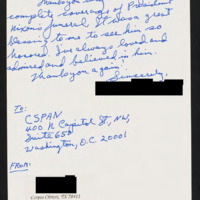 Thank you
complete coverage of President
Nixon's funeral. It was a great
blessing to me to see him so
honored. I've always loved and
admired and believed in him.
Thank you again.
Sincerely,
TO:
CSPAN
400 N Capitol St, NW,
Suite 650
Washington, D.C. 20001
FROM:
Corpus Christi, TX 78415